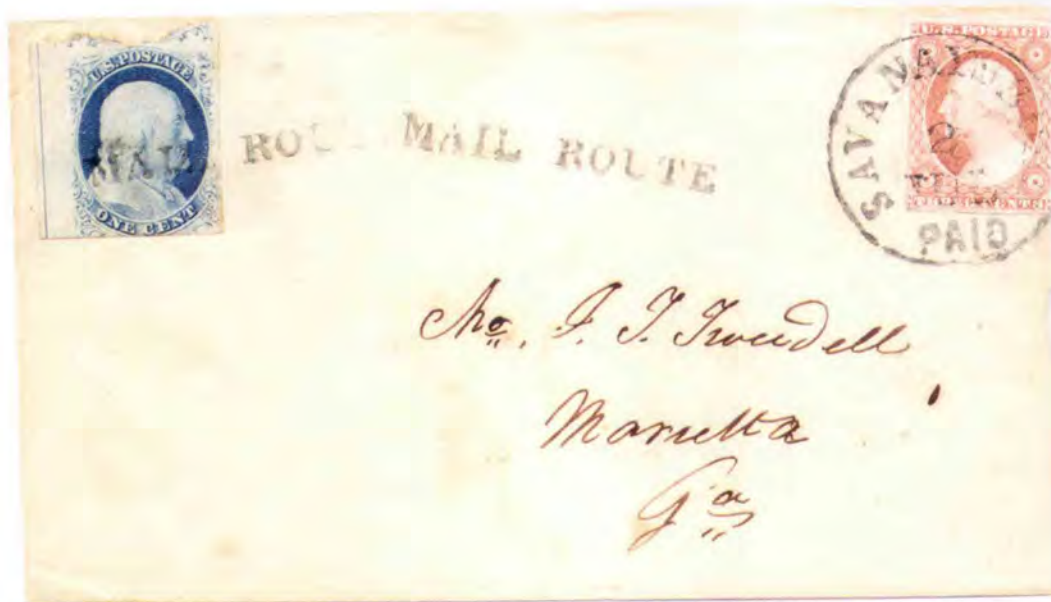 U.S. POSTAGE
ONE CENT
MAIL ROUTE
MAIL ROUTE
U.S. POSTAGE
THREE CENTS
SAVANAH
PAID
J. T. Trendell
Marietta
Ga